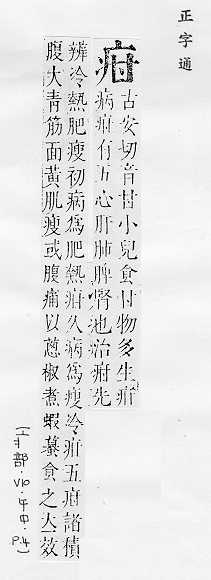 正字通
疳
古安切音甘小兒食甘物多生疳
病疳有五心肝肺脾腎也治疳先
辨冷熱肥瘦初病爲肥熱疳久病爲瘦冷疳五疳諸積
腹大青筋面黃肌瘦或腹痛以蔥椒煮蝦蟇食之大效
疒部·V10·午中·P.4